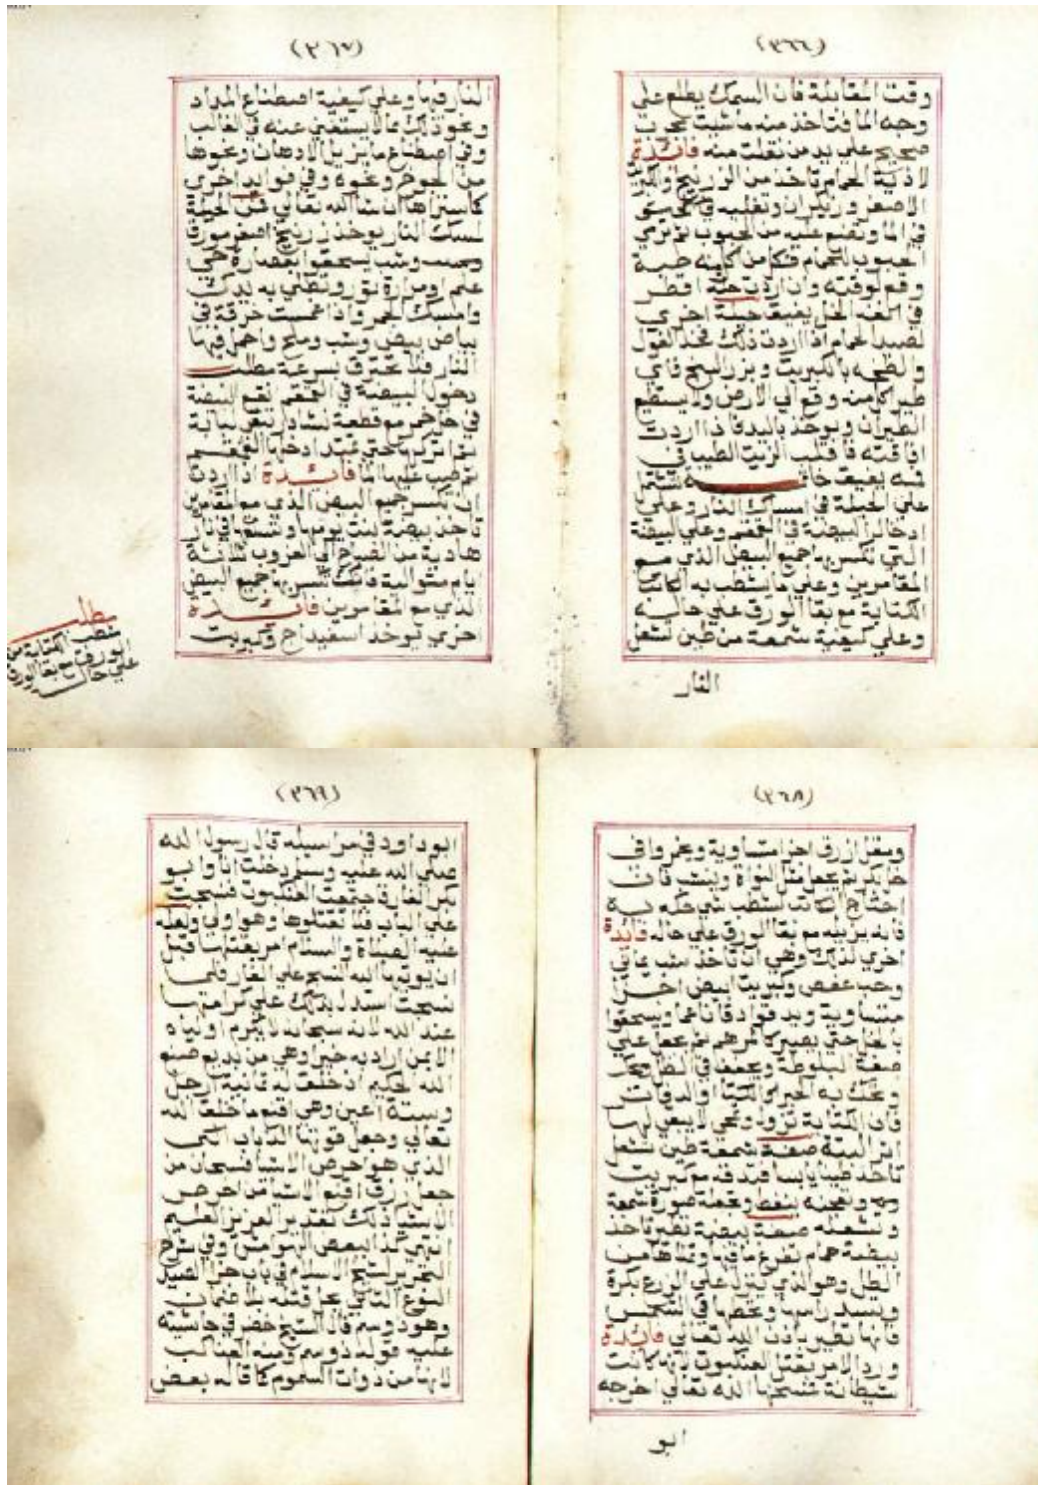 (٣٦٦)
وقت المقابلة فان السمك يطلع علي
وجه الما فتاخذ منه ما شيت مجرب
صحيح علي يد من نقلت منه فائدة
لاذية الحمام تاخذ من الزرنيخ
الاصفر وتغليه في
الما وتضع عليه من الحبوب ثم ترمي
الحبوب للحمام فكل من اكل منه حبة
وقع لوقته واذا اردت حله اقطر
في انفه الخل يفيق حيلة اخري
لصيد الحمام اذا اردت ذلك فخذ الفول
واطبخه بالكبريت وبزر البنج فاي
طير اكل منه وقع الي الارض ولا يستطيع
الطيران ويوخذ باليد فاذا اردت
افاقته فاقلب الزيت الطيب في
فمه يفيق تشتمل
علي الحيلة في امساك النار وعلي
ادخال البيضة في القمقم وعلي البيضة
التي تكسر بها جميع البيض الذي مع
المقامرين وعلي ما يشطب به الكاتب
الكتابة مع بقا الورق علي حاله
وعلي كيفية شمعة من طين تشعل
النار
(٣٦٧)
النار فيها وعلي كيفية اصطناع المداد
ونحو ذلك مما لا يستغني عنه في الغالب
وفي اصطناع ما يزيل الادهان ونحوها
من الجوخ ونحوه وفي فوايد اخري
كما ستراها ان شا الله تعالي فمن الحيلة
لمسك النار يوخذ زرنيخ اصفر
وشب يسحقوا بعصارة حي
علم او مرارة ثور وتطلي به يدك
وامسك الجمر واذا غمست خرقة في
بياض بيض وشب وملح واحمل فيها
النار فلا تحترق بسرعة مطلب
دخول البيضة في القمقم تقع البيضة
في خل خمر مع قطعة نشادر
ثم اتركها حتي تمتد ادخلها القمقم
ثم صب عليها الما فائدة اذا اردت
ان تكسر جميع البيض الذي مع المقامرين
تاخذ بيضة بنت يومها
من الصباح الي الغروب ثلاثة
ايام متوالية فانك تكسر بها جميع البيض
الذي مع المقامرين فائدة
اخري توخذ اسفيداج وكبريت
مطلب
شطب الكتابة من
الورق مع بقا الورق
علي حاله
(٣٦٨)
ازرق اجزا متساوية ويخمروا في
خل بكر ثم يجعل مثل النواة فان
احتاج الكاتب لشطب شي حكه به
فانه يزيله مع بقا الورق علي حاله فائدة
اخري لذلك وهي ان تاخذ شب يماني
وحب عفص وكبريت ابيض اجزا
متساوية ويدقوا دقا ناعما ويسحقوا
بالخل حتي يصير كالمرهم ثم يجعل علي
صفة البلوطة ويجفف في الظل
ويحك به الحبر
فان الكتابة تزول وتمحي لا يبقي لها
اثر البتة صفة شمعة طين تشعل
تاخذ طينا يابسا فتدقه مع كبريت
وتعجنه بنفط وتجعله صورة شمعة
وتشعله صفة بيضة تطير تاخذ
بيضة حمام تفرغ ما فيها وتملاها من
الطل وهو الذي ينزل علي الزرع بكرة
ويسد راسها وتحطها في الشمس
فانها تطير باذن الله تعالي فائدة
ورد الامر بقتل العنكبوت لانها كانت
شيطانة فمسخها الله تعالي اخرجه
ابو
(٣٦٩)
ابو داود في مراسيله قال رسول الله
صلي الله عليه وسلم دخلت انا وابو
بكر الغار فاجتمعت العنكبوت فنسجت
علي الباب فلا تقتلوها وهو اولي ولعله
عليه الصلاة والسلام امر بقتلها قبل
ان يوحي اليه النسج علي الغار فلما
نسجت استدل بذلك علي كرامتها
عند الله لانه سبحانه لا يكرم
الا من اراد به خيرا وهي من بديع صنع
الله الحكيم اذ خلقت له ثمانية ارجل
وستة اعين وهي اقنع ما خلق الله
تعالي وجعل قوتها الذباب
الذي هو احرص الاشيا فسبحان من
جعل رزق اقنع الاشيا من احرص
الاشيا ذلك تقدير العزيز العليم
انتهي كذا ببعض الهوامش وفي شرح
التحرير لشيخ الاسلام في باب جزا الصيد
النوع الثاني يجوز قتله بلا ضمان
وهو ذو سم قال الشيخ خضر في حاشيته
عليه قوله ذو سم ومنه العناكب
لانها من ذوات السموم كما قاله بعض